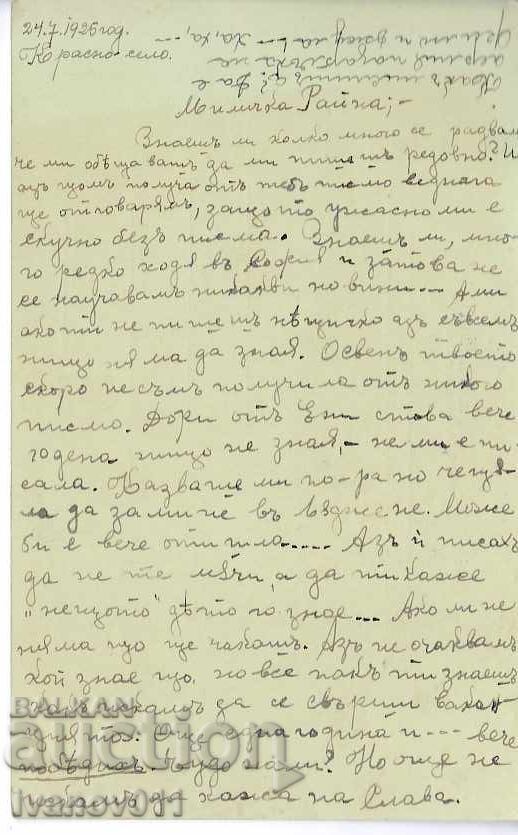 24.7.1926 год.
Красно село.
Миличка Райна;-
Знаешъ ли колко много се радвамъ
че ми обѣщавашъ да ми пишешъ редовно? И
азъ щомъ получа отъ тебъ писмо веднага
ще отговарямъ, защото ужасно ми е
скучно безъ писма. Знаешъ ли, мно-
го редко ходя въ София и затова не
се научавамъ никакви новини... Ами
ако ти не пишешъ нѣщичко азъ съвсемъ
нищо няма да зная. Освенъ твоето
скоро не съмъ получила отъ никого
писмо. Дори отъ Ени става вече
година нищо не зная,- не ми е пи-
сала. Казваше ми по-рано че
ла да замине въ не. Може
би е вече отишла.... Азъ ѝ писахъ
да не те мѫчи, а да ти каже
„нещото" дѣто го знае... Ако ли не
няма що ще чакашъ. Азъ не очаквамъ
кой знае що, но все пакъ ти знаешъ
какъ искамъ да се свърши вакан-
цията. Още една година и --- вече
Чудо нали? Но още не
да кажа на Слава.
BALKAN
auction
ivanov011